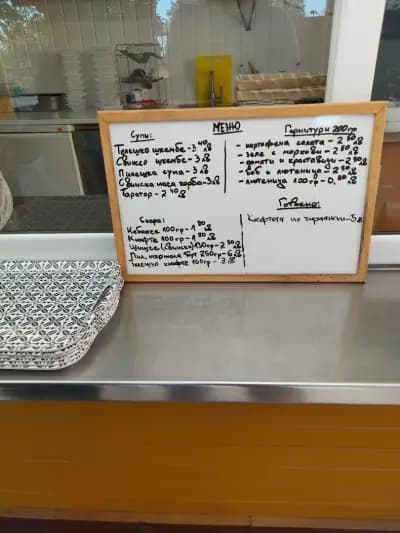 Меню
Супи:
Телешко шкембе-3⁴⁰лв
Свинско шкембе-3лв
Пилешка супа-3лв
Свинска чорба-3лв
Таратор-2⁴⁰лв
Скара:
Кебапче 100гр-1⁸⁰лв
Кюфте 100гр-1⁸⁰лв
Шишче (свинско) 130гр-2⁵⁰лв
Пил. пържола бут 250гр-6лв
Телешко кюфте 100гр-3лв
Гарнитури 200гр
- картофена салата-2⁵⁰лв
- зеле с моркови-2⁵⁰лв
- домати и краставици-2⁵⁰лв
- боб с лютеница-2⁵⁰лв
- лютеница 100гр-0,⁸⁰лв
Готвено:
Кюфтета по чирпански-5лв